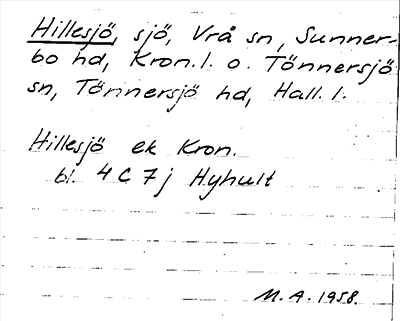 Hillesjö, sjö, Vrå sn, Sunner-
bo hd, Kron.l. o. Tönnersjö
sn, Tönnersjö hd, Hall. l.
Hillesjö ek Kron.
bl. 4 C 7 j Hyhult
M. A. 1958.